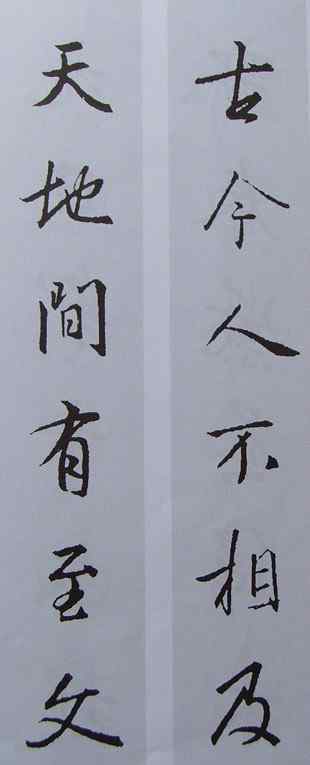 古今人不相及
天地間有至文